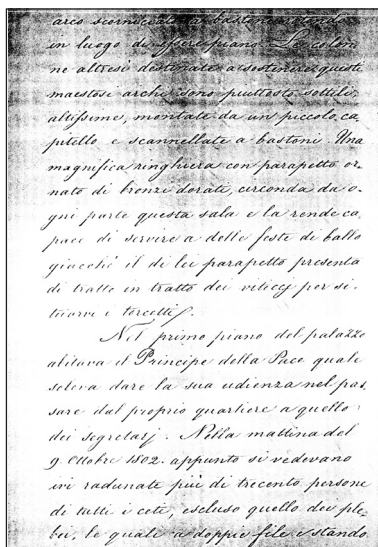 arco scorniciato a bastone ritondo
in luogo di essere piano. Le colon
ne altresì destinate a sostenere questi
maestosi archi sono piuttosto sottili,
altissime, montate da un piccolo ca
pitello e scannellate a bastoni. Una
magnifica ringhiera con parapetto or
nato di bronzi dorate, circonda da o-
gni parte questa sala e la rende ca
pace di servire a delle feste di ballo
giacchè il di lei parapetto presenta
di tratto in tratto dei viticcj per si-
tuarvi i torcetti.
Nel primo piano del palazzo
abitava il Principe della Pace quale
soleva dare la sua udienza nel pas
sare dal proprio quartiere a quello
dei segretarj. Nella mattina del
9. Ottobre 1802. appunto si vedevano
ivi radunate più di trecento persone
di tutti i ceti, escluso quello dei ple
bei, le quali a doppie file e stando